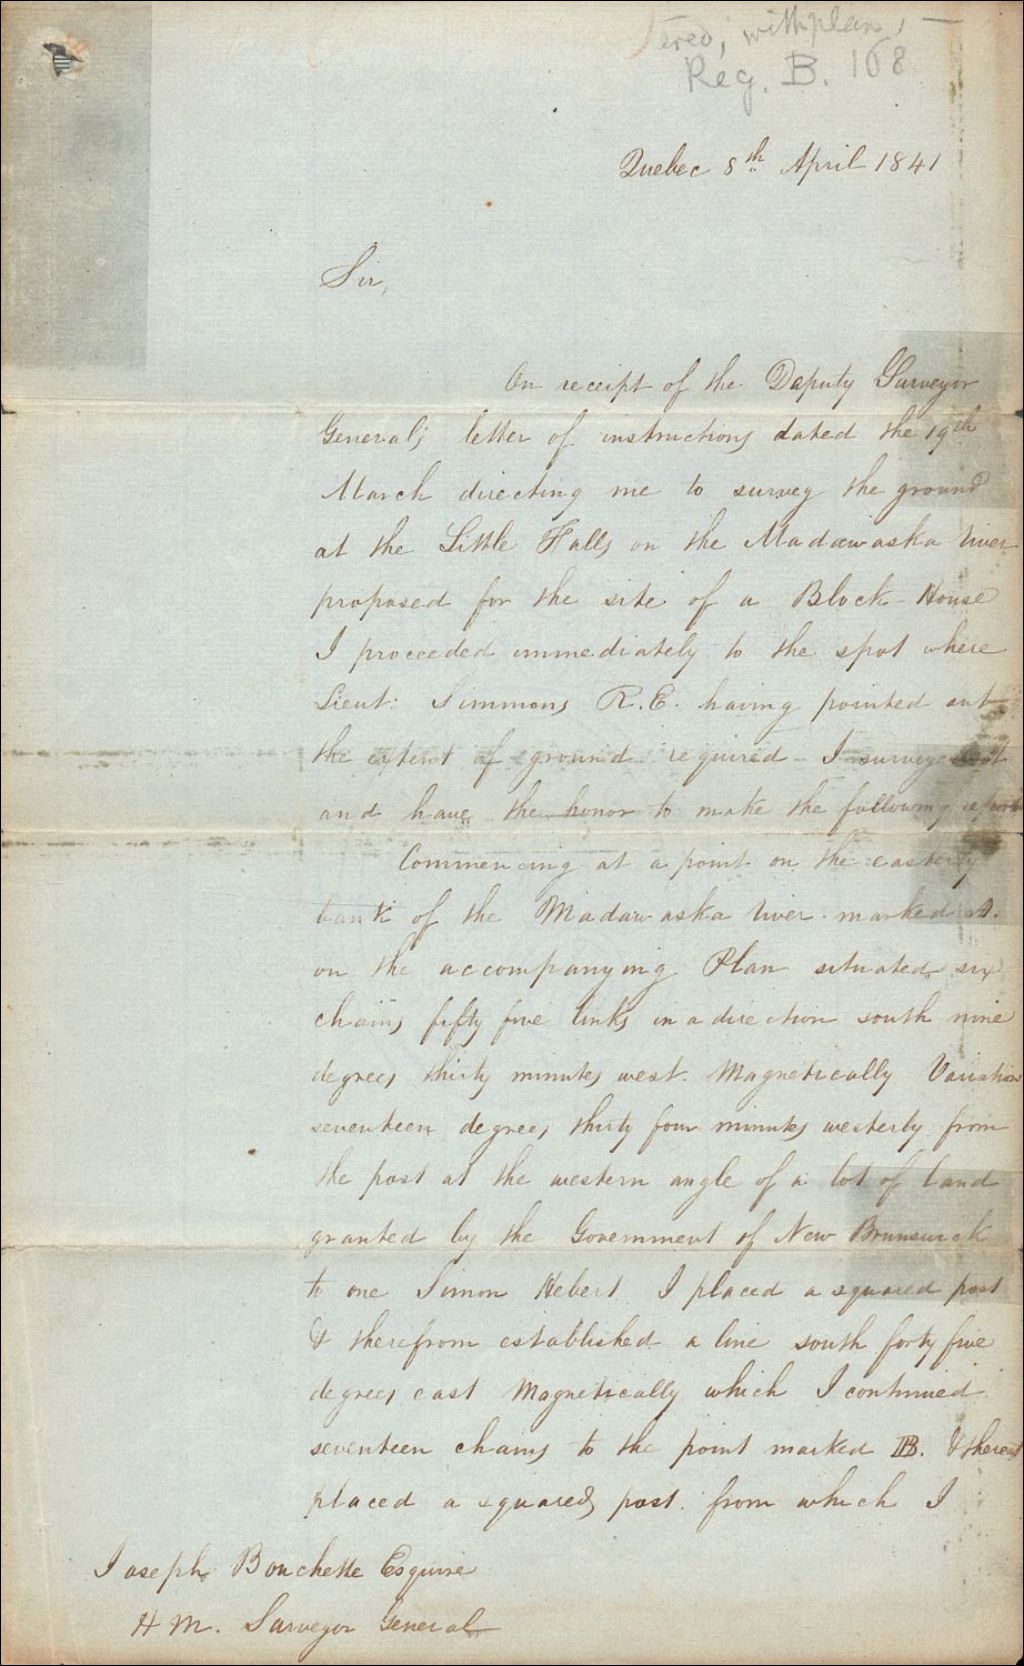 ered, with plan, —
Reg. B. 168
Quebec 8th April 1841
Sir,
On receipt of the Deputy Surveyor
Generals letter of instructions dated the 19th
March directing me to survey the ground
at the Little Falls on the Madawaska River
proposed for the site of a Block-House
I proceeded immediately to the spot where
Lieut: Simmons R.E. having pointed out
the extent of ground required - I surveyed it
and have the honor to make the following report
Commencing at a point on the easterly
bank of the Madawaska River marked A.
on the accompanying Plan situated six
chains fifty five links in a direction south nine
degrees thirty minutes west Magnetically Variation
seventeen degrees thirty four minutes westerly from
the post at the western angle of a lot of land
granted by the Government of New Brunswick
to one Simon Hebert I placed a squared post
& therefrom established a line south forty five
degrees east Magnetically which I continued
seventeen chains to the point marked B. & thereat
placed a squared post from which I
Joseph Bouchette Esquire
H M. Surveyor General